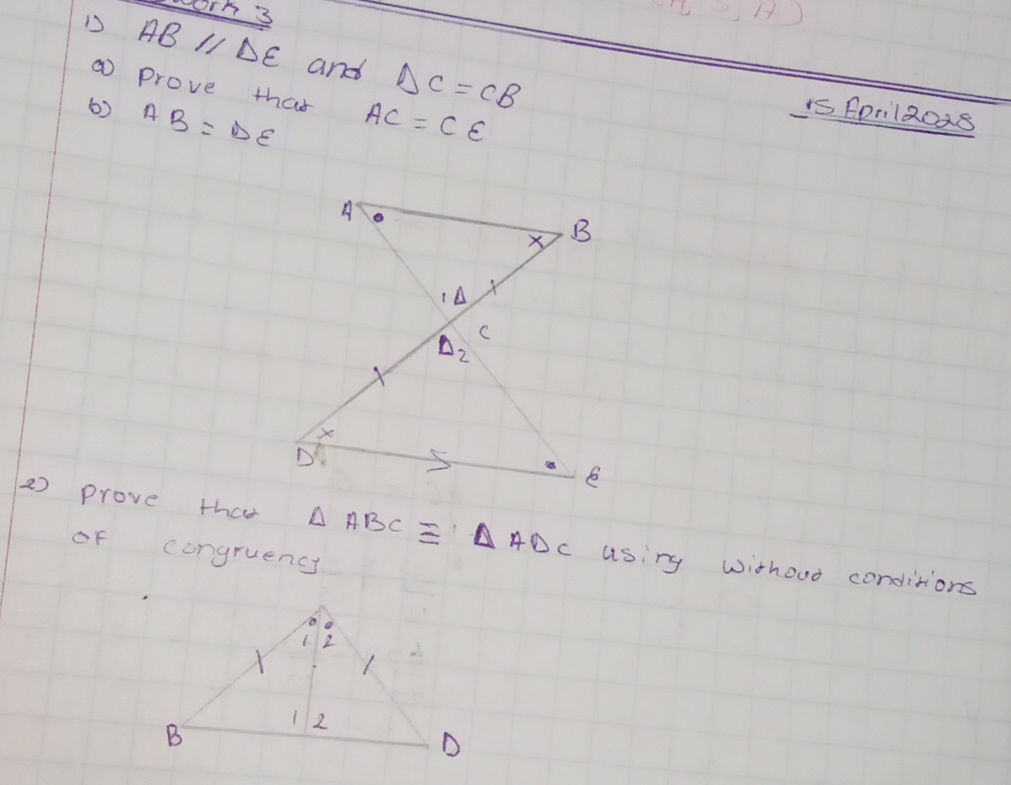 work 3
1) AB // DE and DC = CB
a) Prove that AC = CE
b) AB = DE
15 April 2025
A
B
1
C
2
D
E
2) Prove that Δ ABC ≡ Δ ADC using without conditions
of congruency
1 2
1 2
B
D